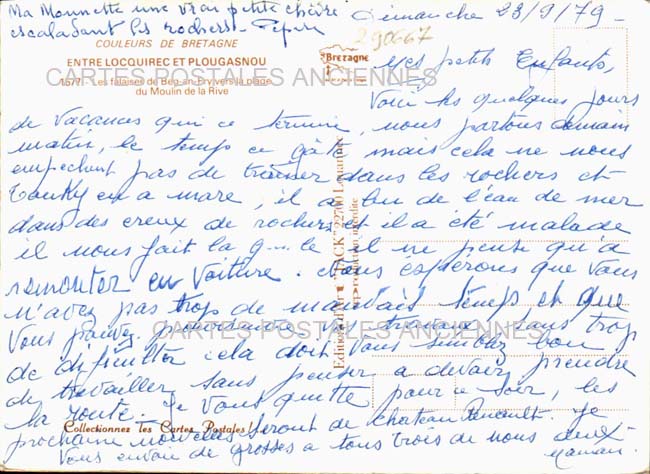 Ma Mounette une vrai petite chèvre
escaladant les rochers - Pépin
Dimanche 23/9/79 -
290667
COULEURS DE BRETAGNE
ENTRE LOCQUIREC ET PLOUGASNOU
1577 - Les falaises de Beg-an-Fry vers la plage
du Moulin de la Rive
Bretagne
CARTES POSTALES ANCIENNES
Mes petits Enfants,
Voici les quelques jours
de vacances qui ce termine, nous partons demain
matin, le temps ce gâte mais cela ne nous
empechent pas de traîner dans les rochers et
en a mare, il a bu de l'eau de mer
dans des creux de rochers et il a été malade
il nous fait la g...le il ne pense qu'à
remonter en voiture. Nous espérons que vous
n'avez pas trop de mauvais temps et que
vous pouvez sans trop
CARTES POSTALES ANCIENNES
de difficultés cela doit vous sembler bon
de travailler sans penser a devoir prendre
la route. Je vous quitte pour ce soir, les
prochaine nouvelles seront de chateau Renault. Je
vous envoie de grosses a tous trois de nous deux -
maman.
Collectionnez les Cartes Postales
Editions "JACK" 22700 Louannec
reproduction interdite